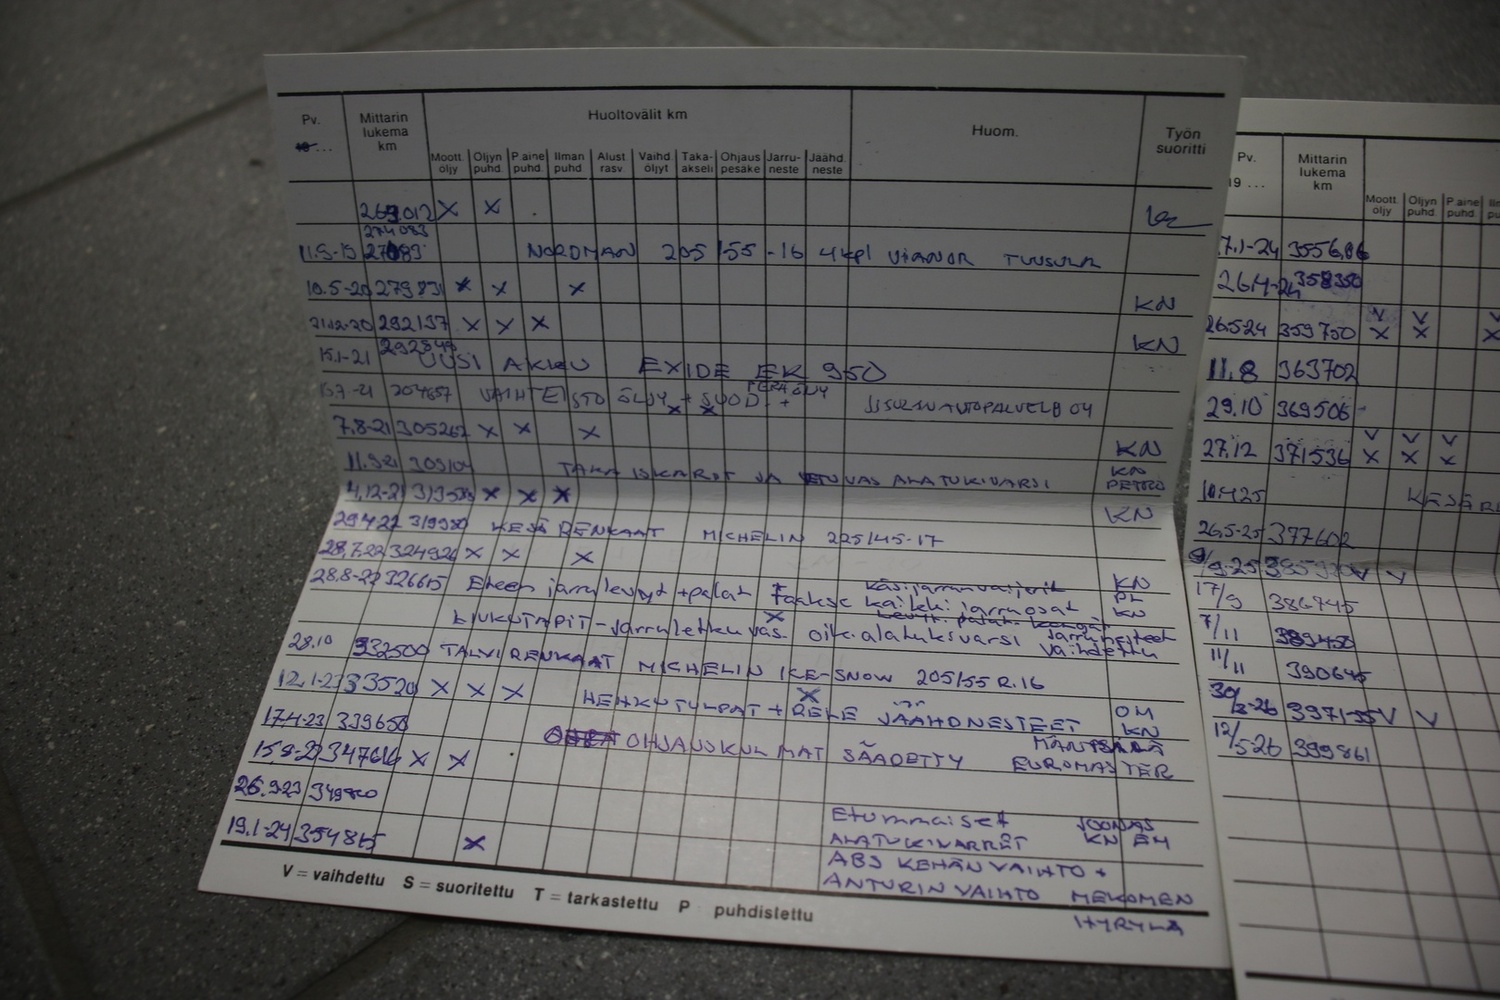 Pv. Mittarin lukema km Huoltovälit km Huom. Työn suoritti
Moott. öljy Öljyn puhd. P.aine puhd. Ilman puhd. Alust rasv. Vaihd öljyt Taka-akseli Ohjaus pesäke Jarru-neste Jäähd. neste
X X
274083
11.9-19 NORDMAN 205/55-16 4kpl VIANOR TUUSULA
10.5-20 279831 X X X KN
21.12-20 292137 X X X KN
15.1-21 292849 UUSI AKKU EXIDE EK 950
PERÄÖLJY
VAIHTEISTO ÖLJY + SUOD. +
X X
7.8-21 305262 X X X KN
TAKA ISKARIT JA VAS ALATUKIVARSI KN PETTERI
4.12-21 X X X KN
29.4-22 KESÄ RENKAAT MICHELIN 225/45-17
28.7-22 324926 X X X KN
28.8-22 326615 Eteen jarrulevyt + palat Taakse kaikki jarruosat PL
KN
LIUKUTAPIT - Jarruletku vas X oik. alatukivarsi Jarrunesteet vaihdettu
28.10 332500 TALVIRENKAAT MICHELIN ICE-SNOW 205/55 R.16
12.1-23 X X X HEHKUTULPAT + RELE X JÄÄHDNESTEET OM
KN
17.4-23 339650 OHJAUSKULMAT SÄÄDETTY MÄNTSÄLÄ EUROMASTER
347616 X X
26.9-23
Etummaiset JOONAS
ALATUKIVARRET KN EH
19.1-24 354815 X ABS KEHÄN VAIHTO +
ANTURIN VAIHTO MEKOMEN
HYRYLÄ
V = vaihdettu S = suoritettu T = tarkastettu P puhdistettu
Pv. 19 ... Mittarin lukema km
Moott. öljy Öljyn puhd. P.aine puhd.
7.1-24 355686
26.4-24 358350
V V
26.5-24 359750 X X
11.8 363702
29.10 369506
V V V
27.12 371536 X X X
26.5-25 377602
9/9-25 V V
17/9 386745
7/11 389450
11/11 390645
30/3-26 V V
12/5-26 399861